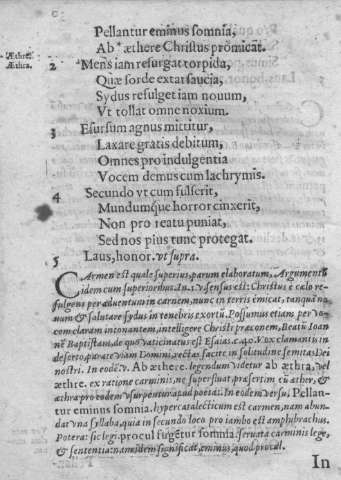 Pellantur eminus somnia,
Ab* æthere Christus promicat.
*Æthre.
Æthra.
2 Mens iam resurgat torpida,
Quæ sorde extat saucia,
Sydus refulget iam nouum,
Vt tollat omne noxium.
3 Esursum agnus mittitur,
Laxare gratis debitum,
Omnes pro indulgentia
Vocem demus cum lachrymis.
4 Secundo vt cum fulserit,
Mundumque horror cinxerit,
Non pro reatu puniat,
Sed nos pius tunc protegat.
5 Laus, honor. vt supra.
CArmen est quale superius, parum elaboratum, Argumentũ
idem cum superioribus. In .1. v sensus est: Christus è cælo re-
fulgens per aduentum in carnem, nunc in terris emicat, tanquã no
uum & salutare sydus in tenebris exortũ. Possumus etiam per vo-
cem claram intonantem, intelligere Christi præconem, Beatũ Ioan
nẽ Baptistam, de quo vaticinatus est Esaias. c. 40. Vox clamantis in
deserto, parate viam Domini, rectas facite in solitudine semitas Dei
nostri. In eodẽ .v. Ab æthere. legendum videtur ab æthra, vel
æthre. ex ratione carminis, ne supersit, præsertim cũ æther, &
æthra pro eodem vsurpentur apud poetas. In eodem versu, Pellan-
tur eminus somnia. hypercatalecticum est carmen, nam abun-
dat vna syllaba, quia in secundo loco pro iambo est amphubrachus.
Poterat sic legi. procul fugẽtur somnia. seruata carminis lege,
& sententia: nam idem significat, eminus, quod procul.
In